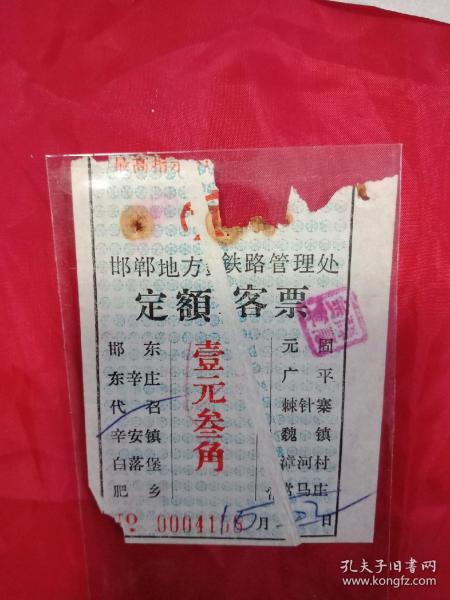 最高指示
邯郸地方铁路管理处
定额客票
邯东
东辛庄
代召
辛安镇
白落堡
肥乡
壹元叁角
元固
广平
棘针寨
魏镇
漳河村
常马庄
№ 0004166
月 日
孔夫子旧书网
www.kongfz.com